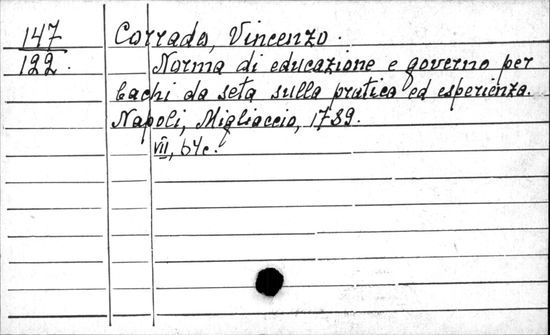 147 Corrado, Vincenzo.
122. Norma di educazione e governo per
bachi da seta sulla pratica ed esperienza.
Napoli, Migliaccio, 1789.
VII, 64c.